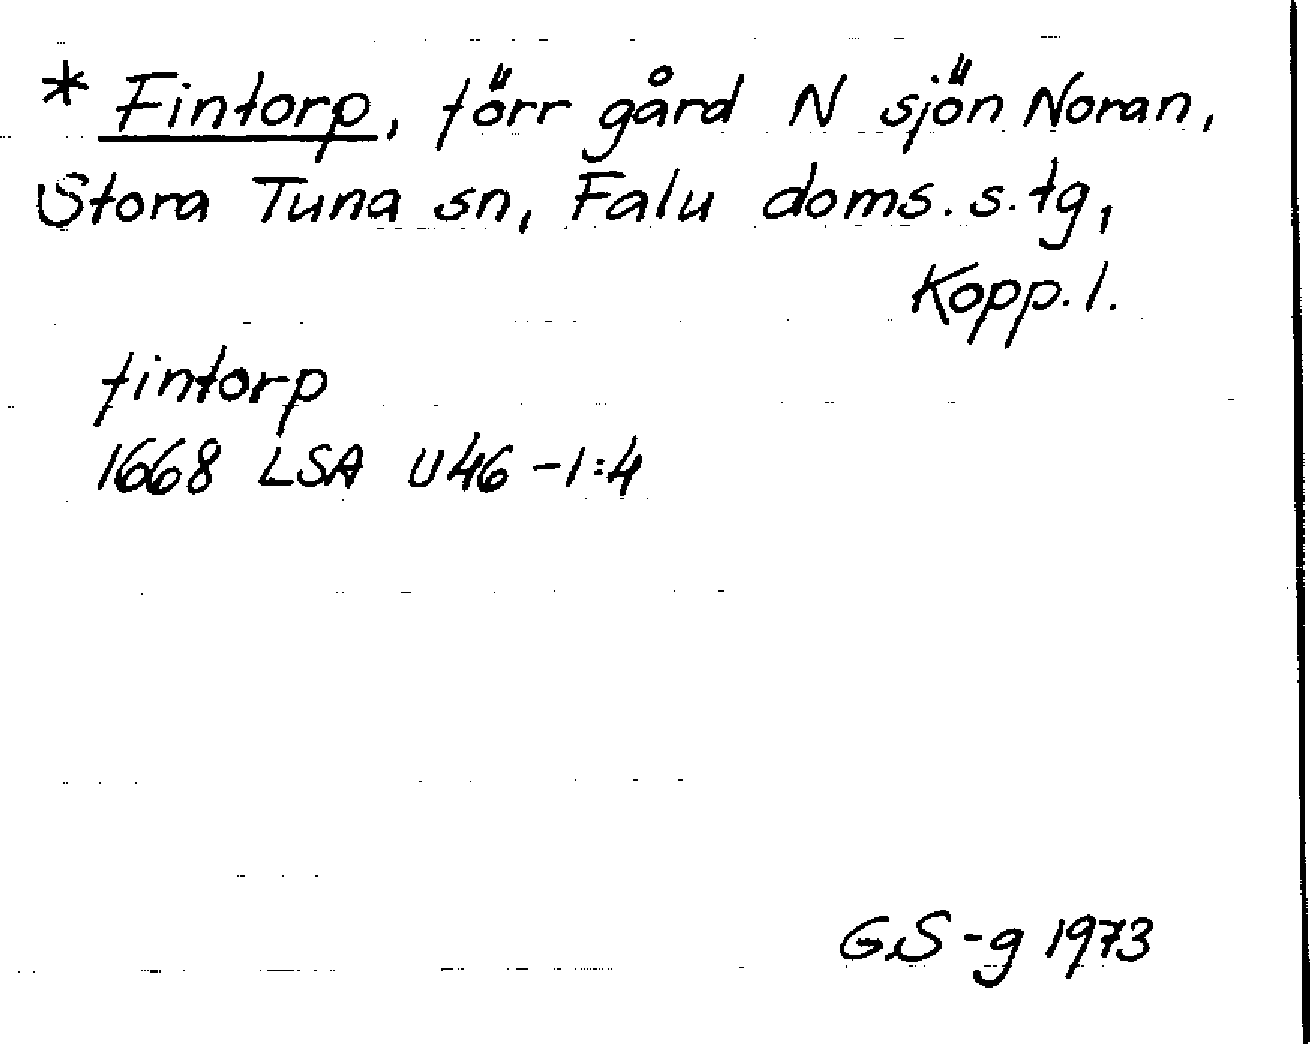 * Fintorp, förr gård N sjön Noran,
Stora Tuna sn, Falu doms. s. tg,
Kopp. l.
fintorp
1668 LSA U46-1:4
G.S-g 1973